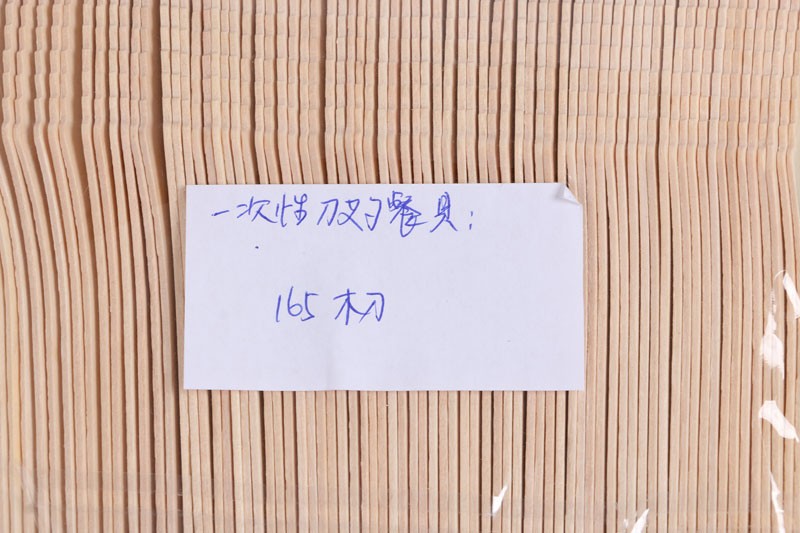 一次性刀叉勺餐具：
165 木刀